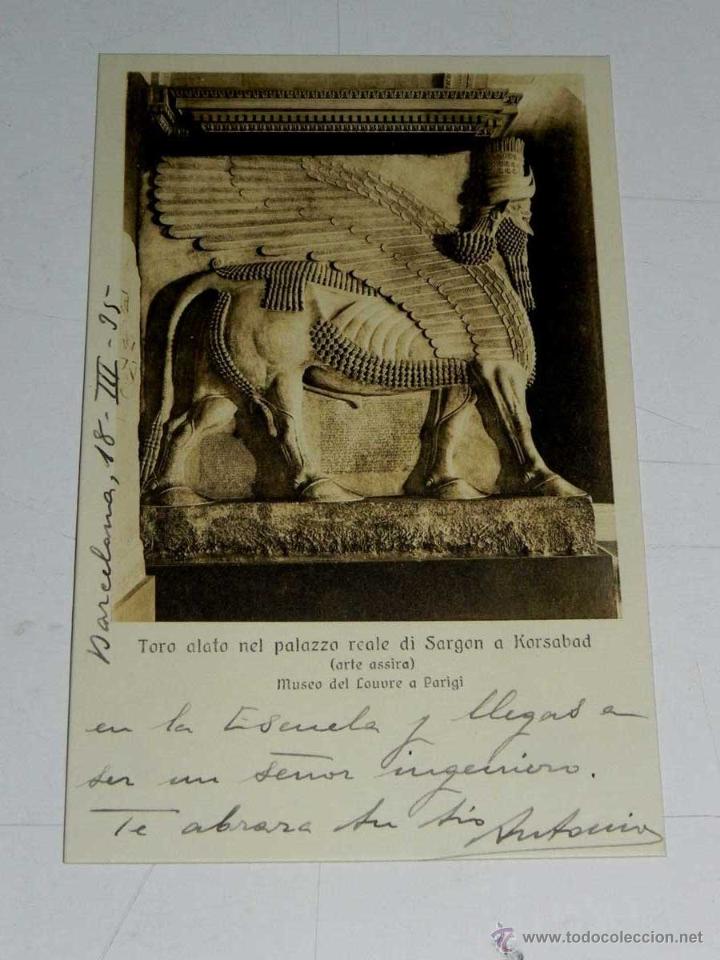 Barcelona, 18-III-35-
Toro alato nel palazzo reale di Sargon a Korsabad
(arte assira)
Museo del Louvre a Parigi
en la Escuela y llegas a
ser un señor ingeniero.
Te abraza tu tio Antonio
www.todocoleccion.net